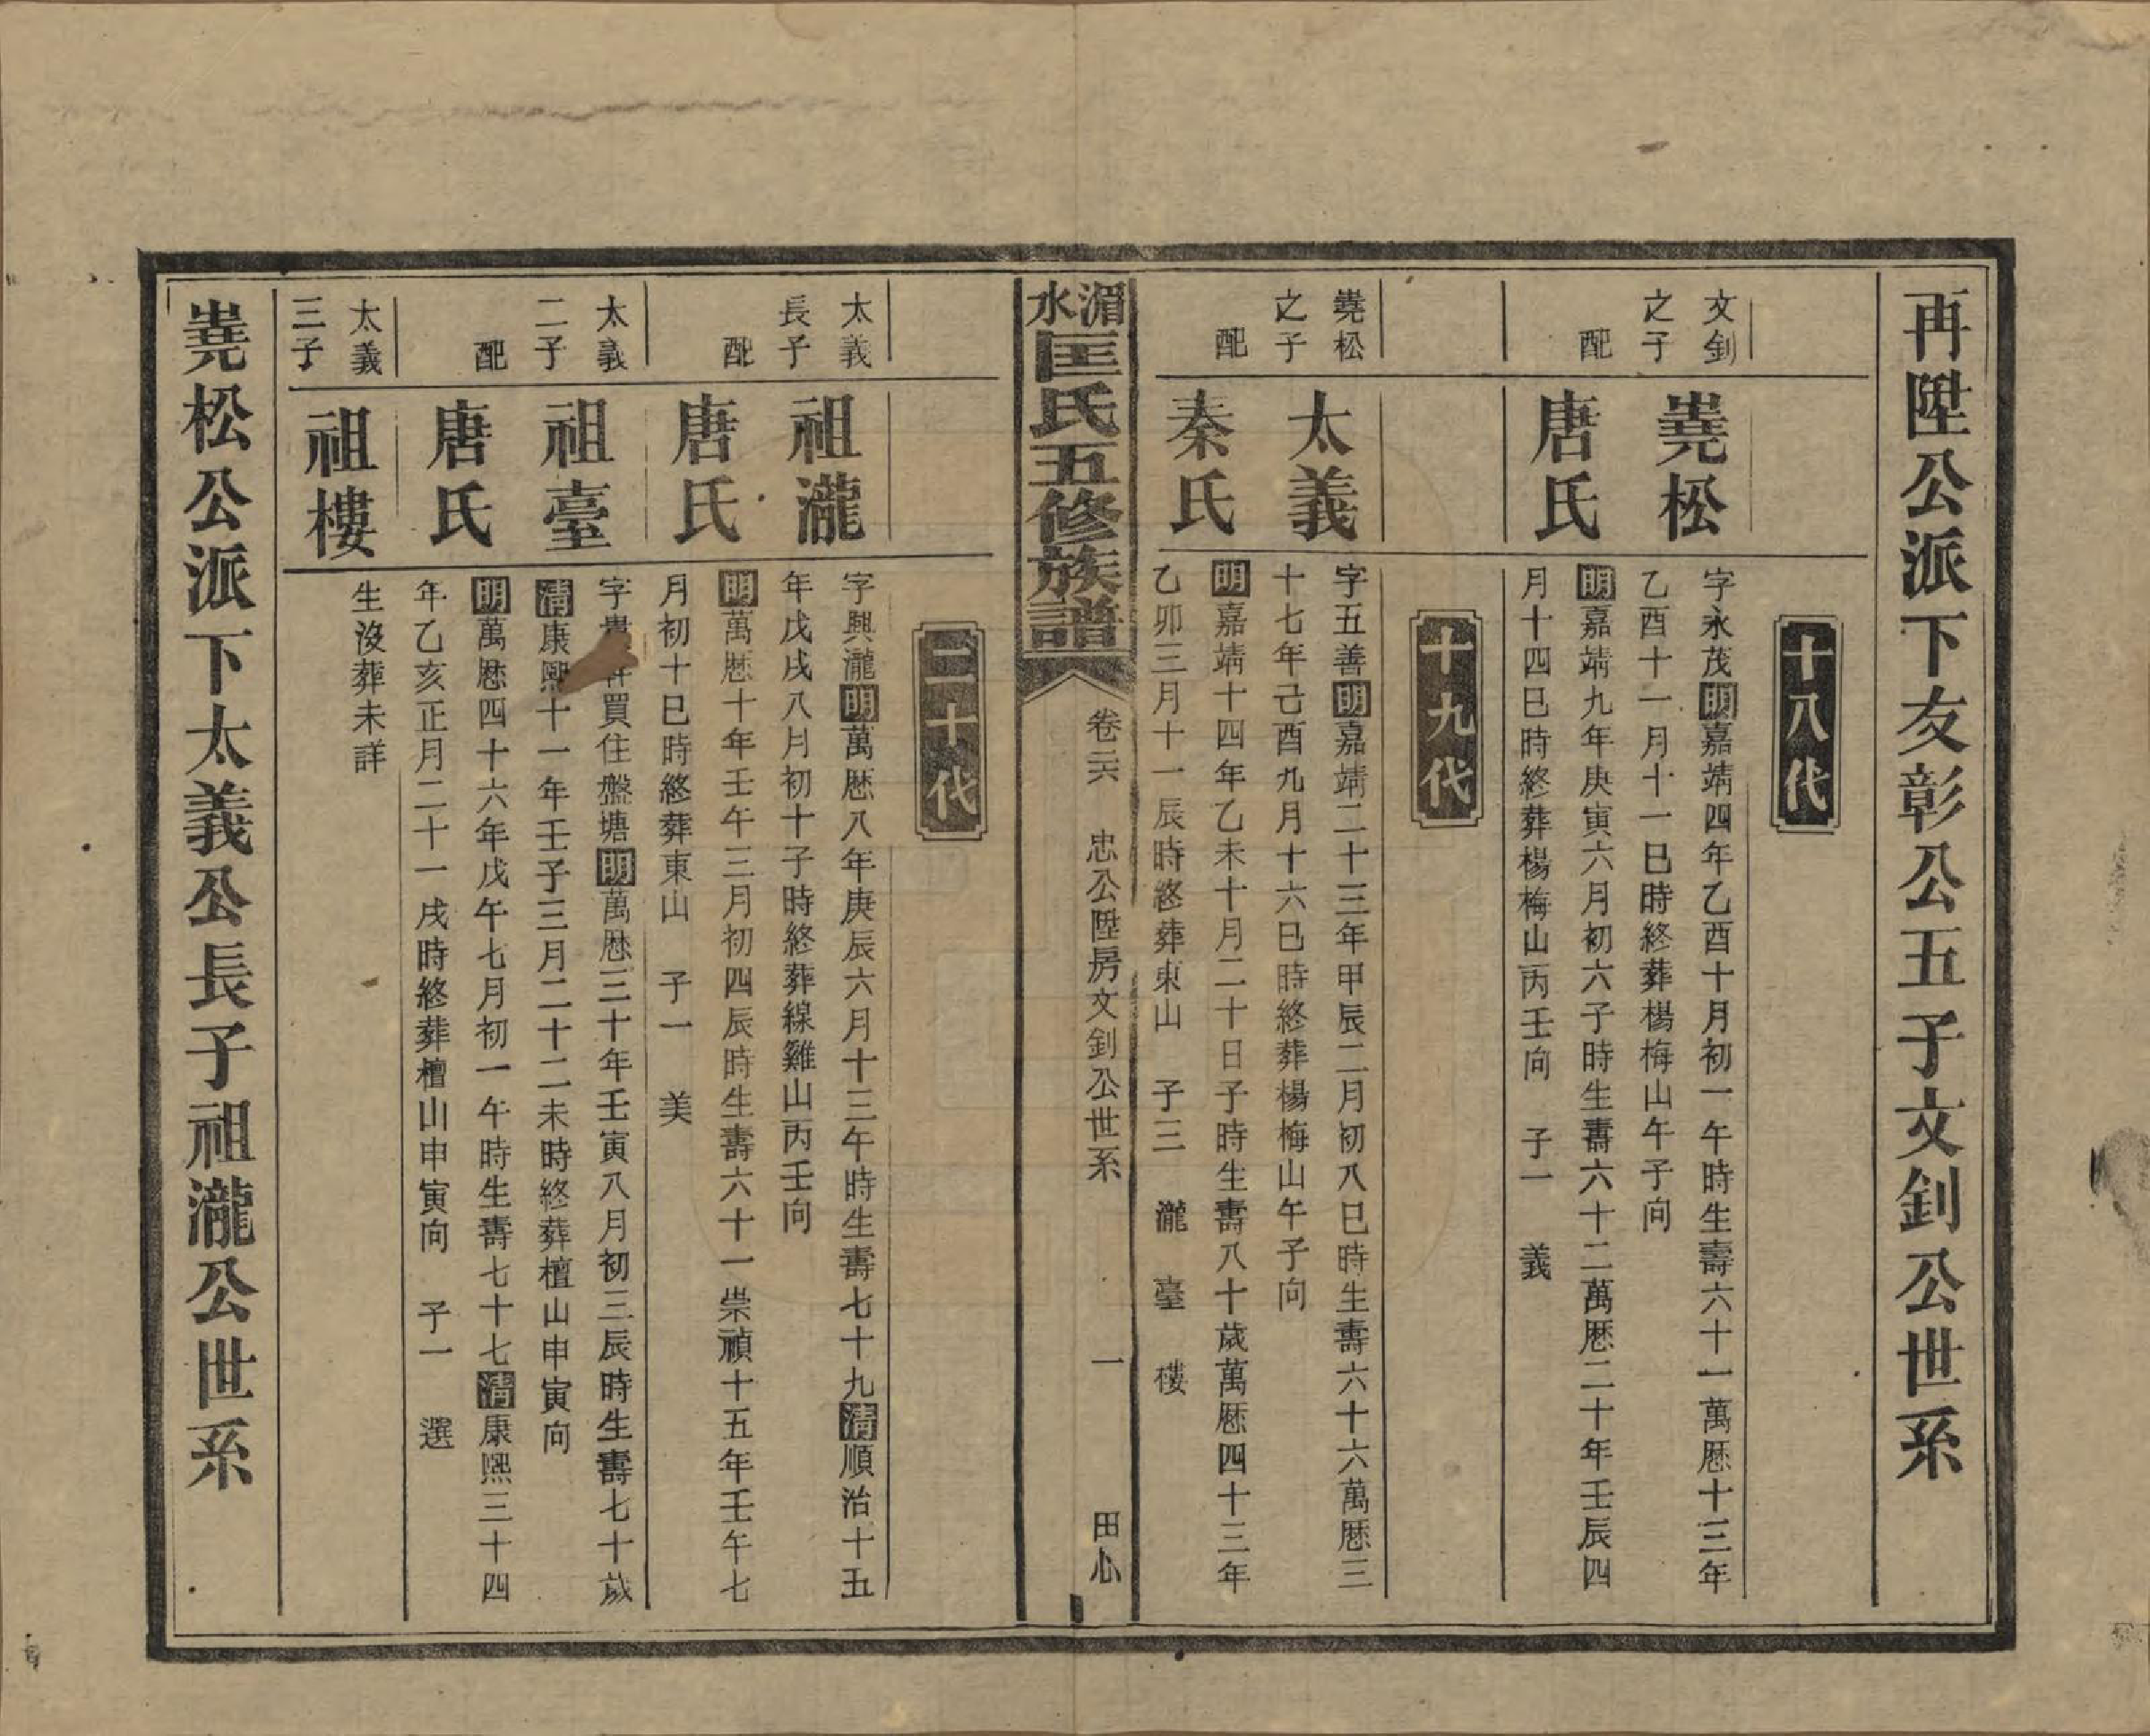 再陞公派下友彰公五子文釗公世系
十八代
文釗
之子
嵬松
字永茂明嘉靖四年乙酉十月初一午時生壽六十一萬厯十三年
乙酉十一月十一巳時終葬楊梅山午子向
配
唐氏
明嘉靖九年庚寅六月初六子時生壽六十二萬厯二十年壬辰四
月十四巳時終葬楊梅山丙壬向 子一 義
十九代
嶤松
之子
太義
字五善明嘉靖二十三年甲辰二月初八巳時生壽六十六萬厯三
十七年己酉九月十六巳時終葬楊梅山午子向
配
秦氏
明嘉靖十四年乙未十月二十日子時生壽八十歲萬厯四十三年
乙卯三月十一辰時終葬東山 子三 瀧 臺 樓
湄水匡氏五修族譜
卷二六 忠公陞房文釗公世系 一 田心
二十代
太義
長子
祖瀧
字興瀧明萬厯八年庚辰六月十三午時生壽七十九清順治十五
年戊戌八月初十子時終葬線雞山丙壬向
配
唐氏
明萬厯十年壬午三月初四辰時生壽六十一崇禎十五年壬午七
月初十巳時終葬東山 子一 美
太義
二子
祖臺
字 買住盤塘明萬厯三十年壬寅八月初三辰時生壽七十歲
清康熙十一年壬子三月二十二未時終葬檀山申寅向
配
唐氏
明萬厯四十六年戊午七月初一午時生壽七十七清康熙三十四
年乙亥正月二十一戌時終葬檀山申寅向 子一 選
太義
三子
祖樓
生沒葬未詳
嶤松公派下太義公長子祖瀧公世系